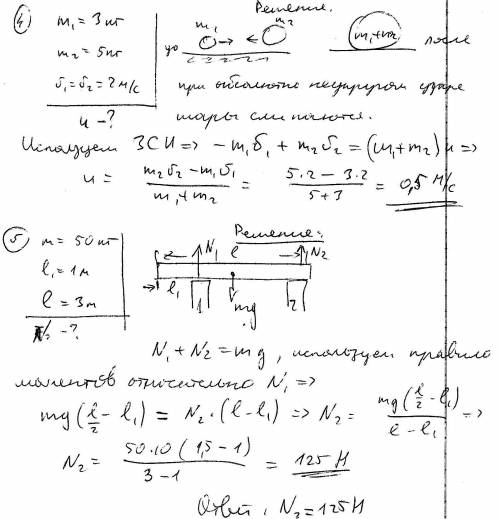 ④ m₁ = 3 кг
m₂ = 5 кг
υ₁ = υ₂ = 2 м/с
u - ?
Решение.
до m₁ m₂ m₁+m₂ после
при абсолютно неупругом ударе
шары слипаются.
Используем ЗСИ => - m₁υ₁ + m₂υ₂ = (m₁+m₂) u =>
u = (m₂υ₂ - m₁υ₁)/(m₁+m₂) = (5·2 - 3·2)/(5+3) = 0,5 м/с
⑤ m = 50 кг
l₁ = 1м
l = 3м
N₂ - ?
Решение:
N₁ l N₂
l₁ 1 mg 2
N₁ + N₂ = mg, используем правило
моментов относительно N₁ =>
mg (l/2 - l₁) = N₂·(l - l₁) => N₂ = mg(l/2 - l₁)/(l - l₁) =>
N₂ = 50·10 (1,5 - 1)/(3 - 1) = 125 Н
Ответ: N₂ = 125 Н